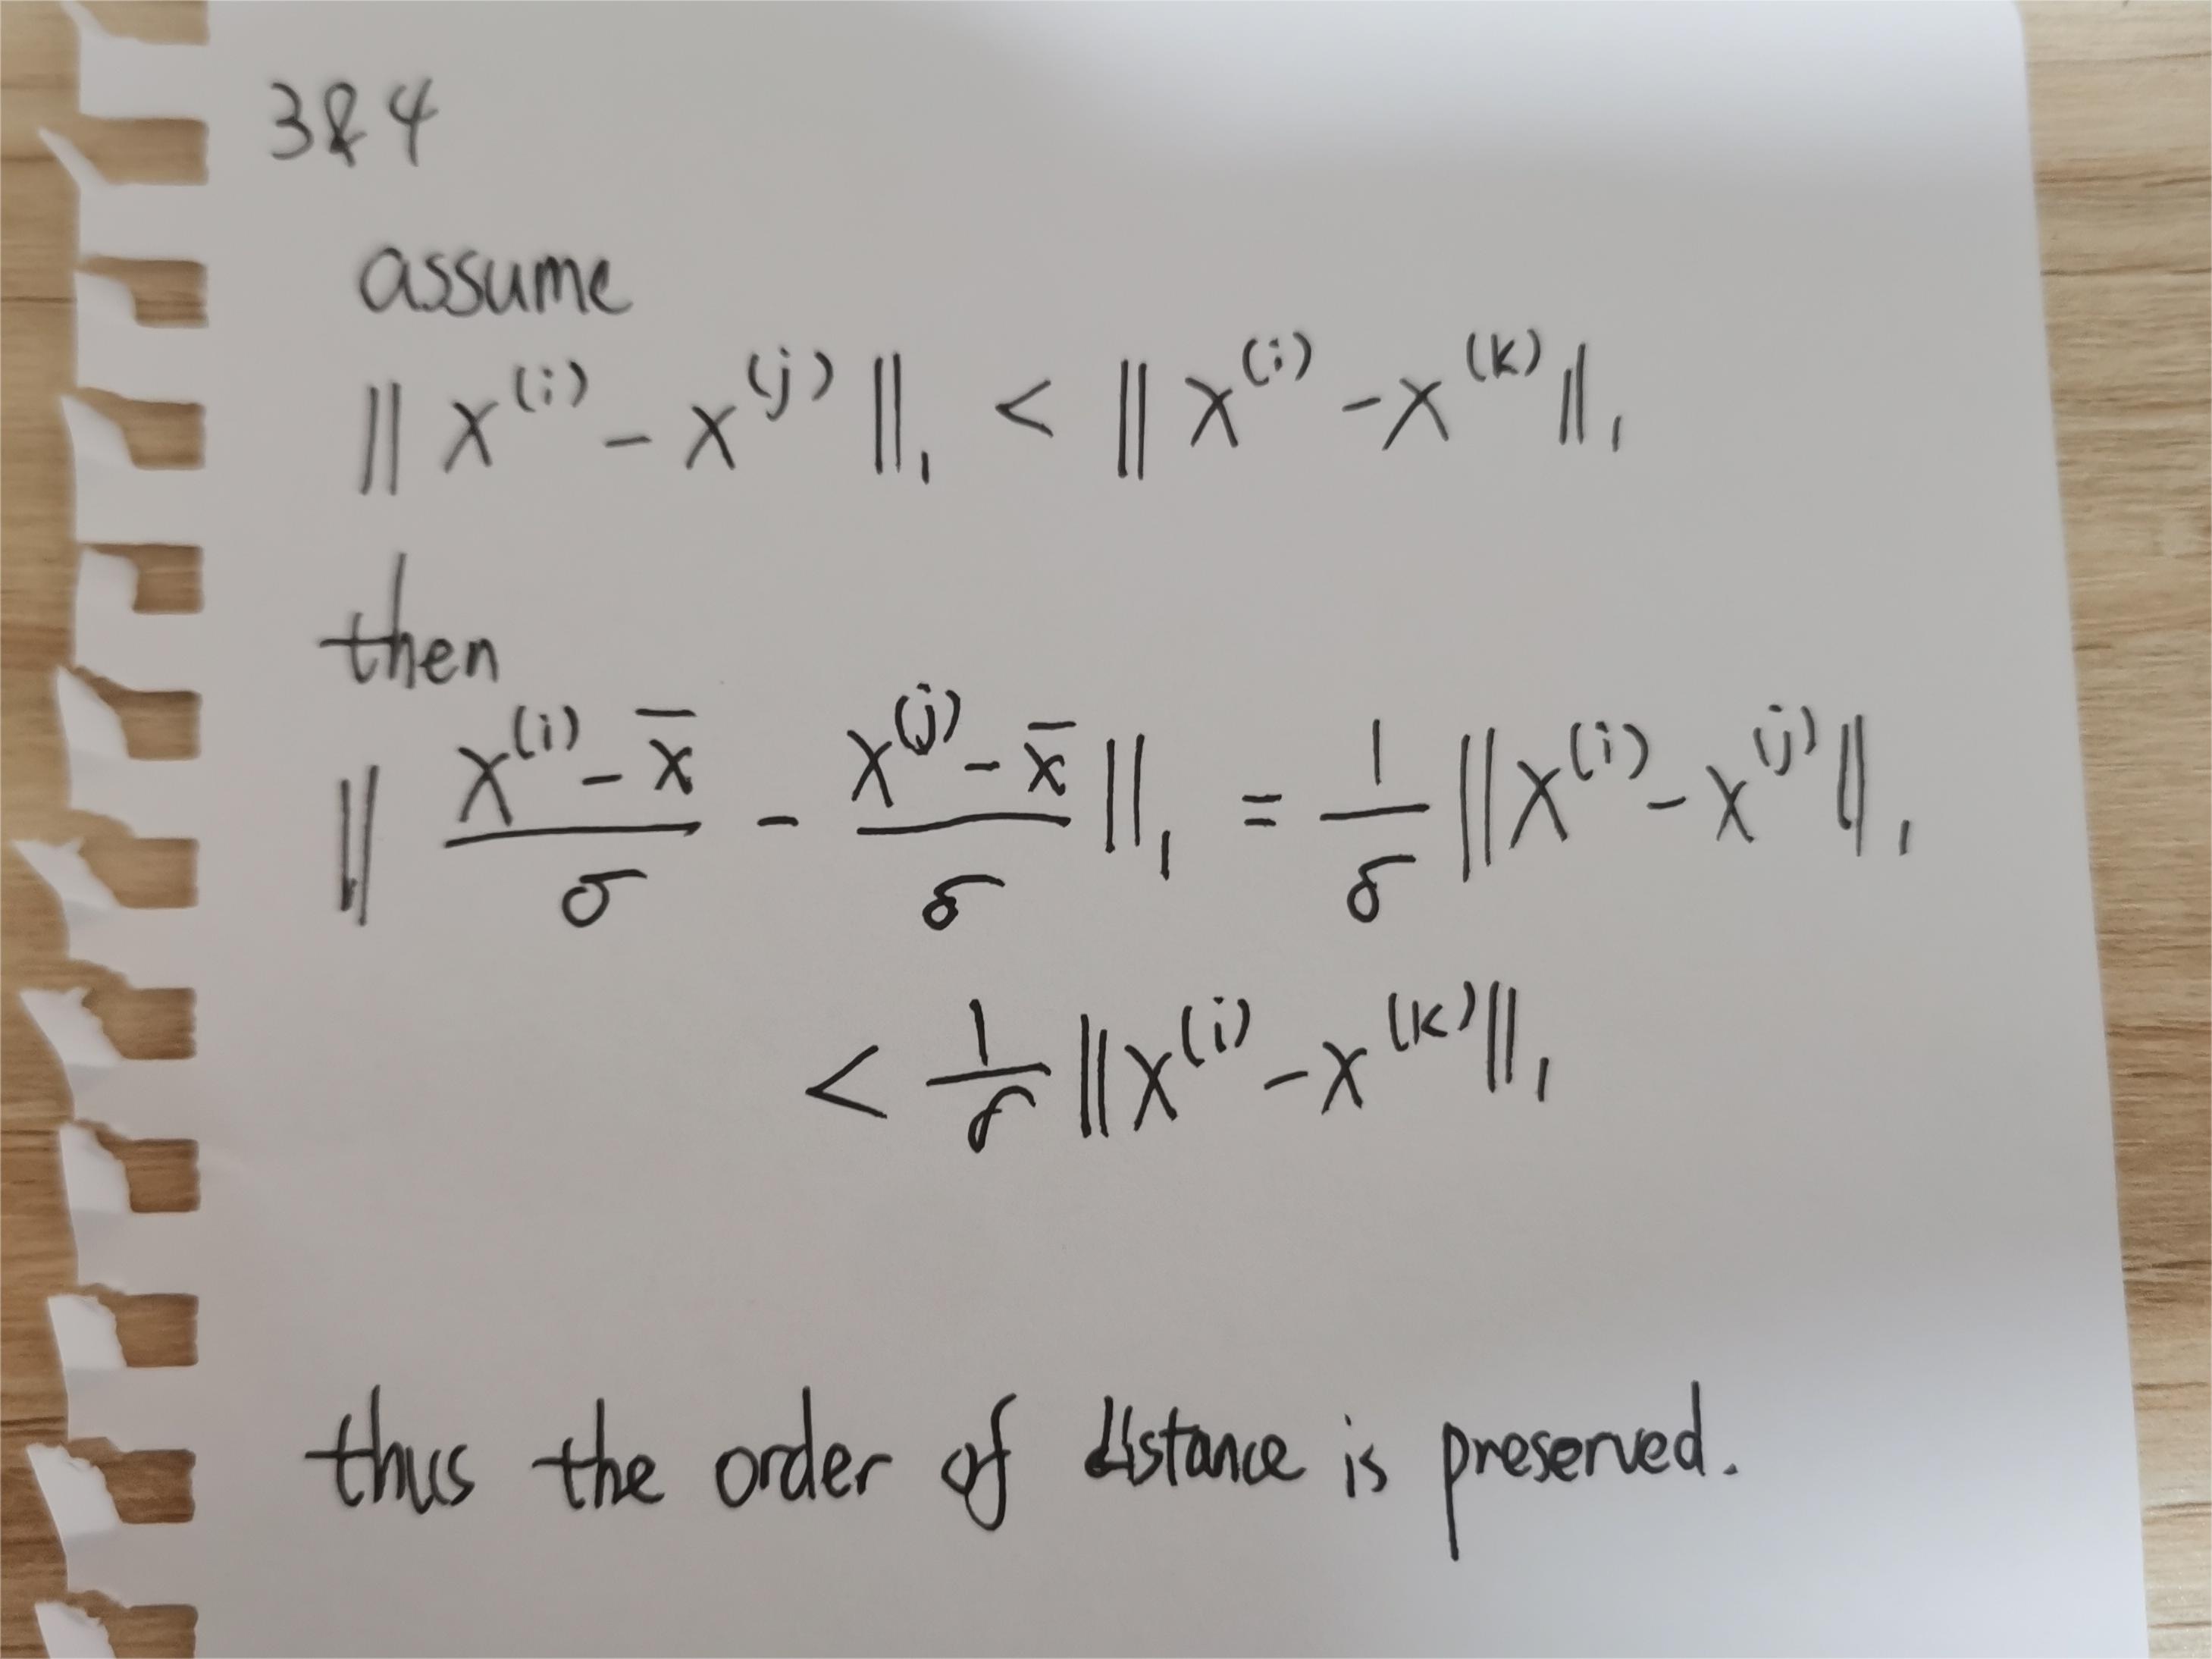 3&4
assume
‖ x^(i) - x^(j) ‖₁ < ‖ x^(i) - x^(k) ‖₁
then
‖ (x^(i) - x̄)/σ - (x^(j) - x̄)/σ ‖₁ = 1/σ ‖ x^(i) - x^(j) ‖₁
< 1/σ ‖ x^(i) - x^(k) ‖₁
thus the order of distance is preserved.